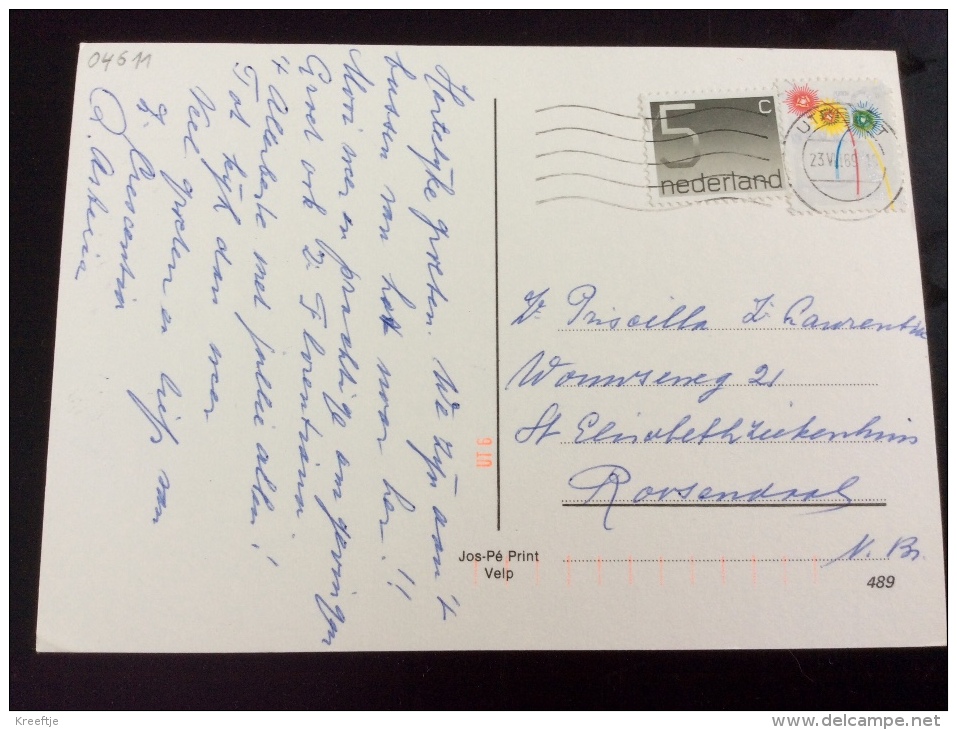 04511
Hartelijke groeten. We zijn aan 't
bussen van hot naar her!!
Mooi weer en prachtige omgeving
Groet ook Z. Florentina
't Allerbeste met jullie allen!
Tot kijk dan maar
Veel groeten en liefs van
Zr. Crescentia
Z. Asteria
5 c
nederland
UTRECHT
Zr. Priscilla Zr Laurentia
Wouwseweg 21
St Elisabethziekenhuis
Roosendaal
N. Br.
UT 6
Jos-Pé Print
Velp
489
Kreeftje
www.delcampe.net